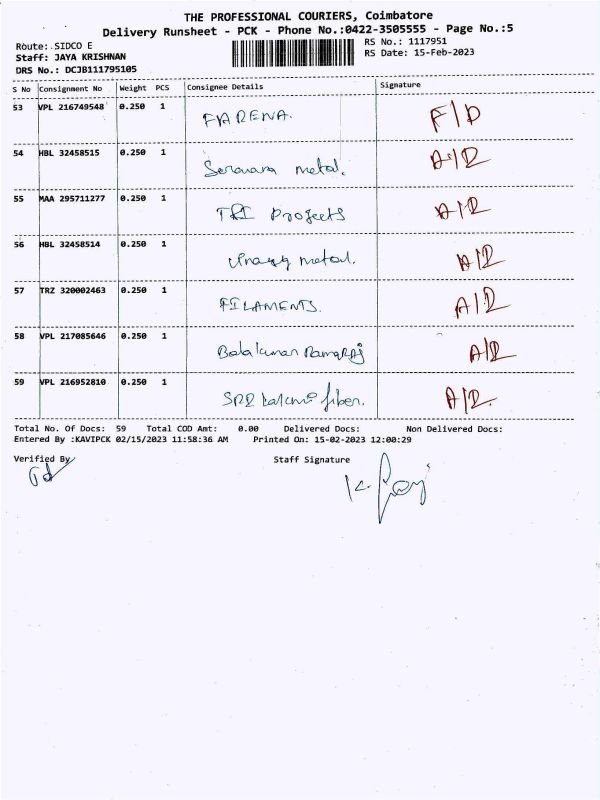 THE PROFESSIONAL COURIERS, Coimbatore
Delivery Runsheet - PCK - Phone No.:0422-3505555 - Page No.:5
Route: SIDCO E
RS No.: 1117951
Staff: JAYA KRISHNAN
RS Date: 15-Feb-2023
DRS No.: DCJB111795105
S No Consignment No Weight PCS Consignee Details Signature
53 VPL 216749548 0.250 1 FARENA. F/D
54 HBL 32458515 0.250 1 metal. A/R
55 MAA 295711277 0.250 1 TRI Projects A/R
56 HBL 32458514 0.250 1 metal. A/R
57 TRZ 320002463 0.250 1 FILAMENTS. A/R
58 VPL 217085646 0.250 1 Balakumar Ramaraj A/R
59 VPL 216952810 0.250 1 fiber. A/R.
Total No. Of Docs: 59 Total COD Amt: 0.00 Delivered Docs: Non Delivered Docs:
Entered By :KAVIPCK 02/15/2023 11:58:36 AM Printed On: 15-02-2023 12:00:29
Verified By Staff Signature